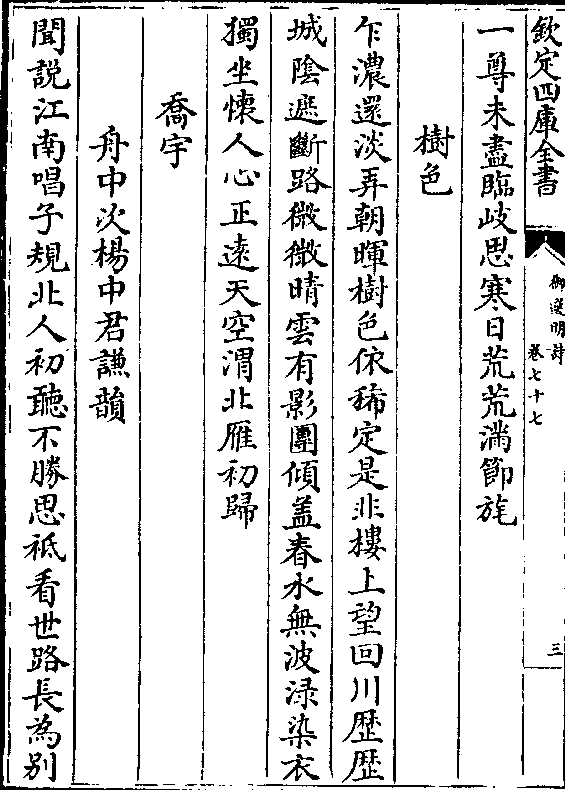 欽定四庫全書
御選明詩
卷七十七
三
一尊未盡臨岐思寒日荒荒滿節旄
樹色
乍濃還淡弄朝暉樹色依稀定是非樓上望回川歴歴
城隂遮斷路微微晴雲有影團傾盖春水無波渌染衣
獨坐懷人心正逺天空渭北雁初歸
喬宇
舟中次楊中君謙韻
聞説江南唱子規北人初聽不勝思祗看世路長為别